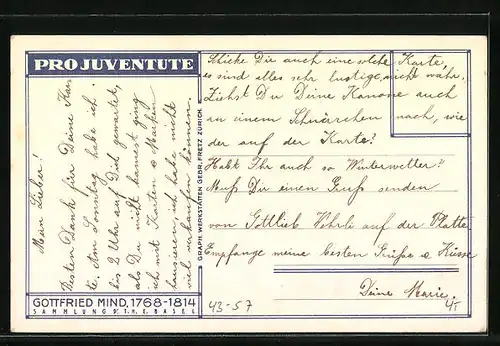 PRO JUVENTUTE
Mein Lieber!
Besten Dank für Deine Kar-
te. Am Sonntag habe ich
bis 2 Uhr auf Dich gewartet,
als Du nicht kamest ging
ich mit Karten & Marken
hausieren, ich habe nicht
viel verkaufen können.
GOTTFRIED MIND, 1768-1814
SAMMLUNG DR. T. H. E. BASEL
GRAPH. WERKSTÄTTEN GEBR. FRETZ ZÜRICH
Schicke Dir auch eine solche Karte,
es sind alles sehr lustige, nicht wahr.
Ziehst Du Deine Kanone auch
an einem Schnürchen nach, wie
der auf der Karte?
Habt Ihr auch so Winterwetter?
Muss Dir einen Gruss senden
von Gottlieb Wehrli auf der Platte
Empfange meine besten Grüsse & Küsse
Deine Marie.
43-57